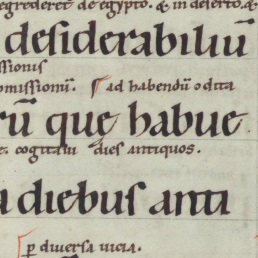 egrederet de egypto. & in deserto. &
desiderabiliū
ssionis
omissionū. ad habendū odita
rū que habue
t. cogitaui dies antiquos.
a diebus anti
p diuersa uicia.